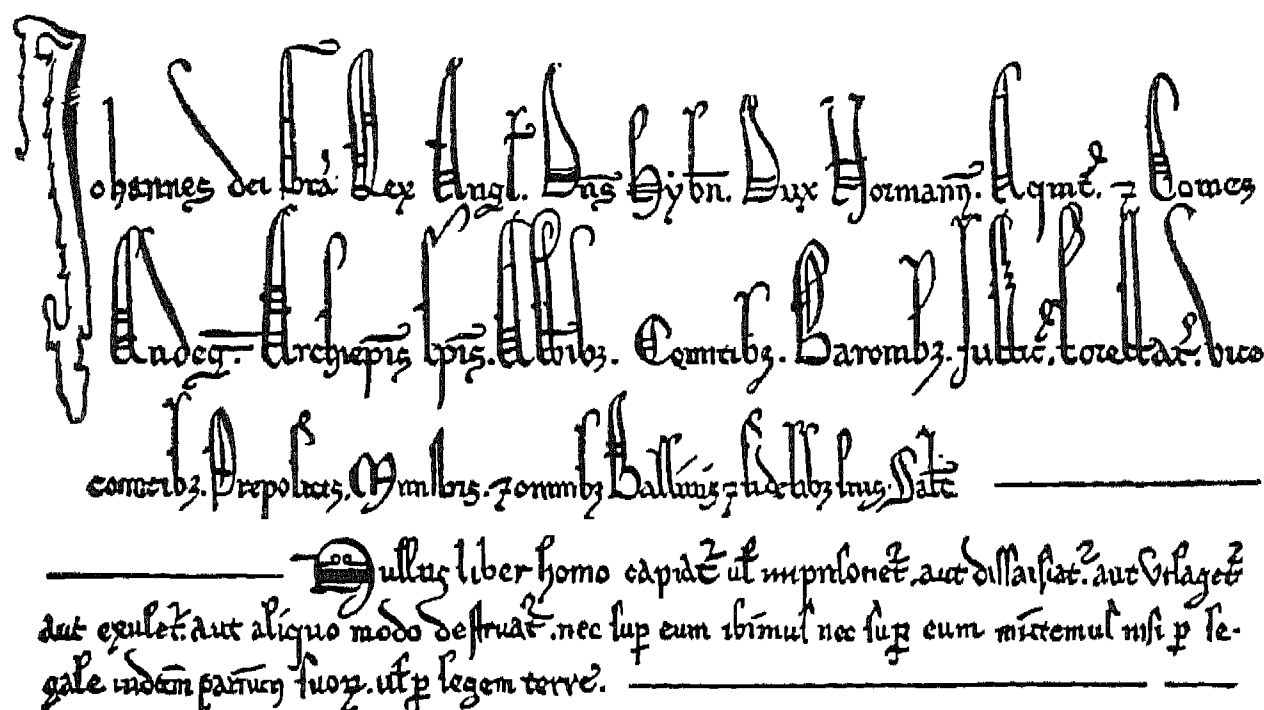 Johannes dei grā Rex Angł. Dn̄s Hybn̄. Dux Normann̄. Aquit̄. ⁊ Comes
Andeḡ. Archiep̄is ep̄is. Abb̄ibȝ. Comitibȝ. Baronibȝ. Justic̄. Forestar̄. vice
comitibȝ. Prepositis. Ministris. ⁊ omnibȝ Ballivis ⁊ fidelibȝ suis. Salt̄
Nullus liber homo capiat᷑ uł imprisonet᷑. aut dissaisiat᷑. aut Utlaget᷑
aut exulet᷑. aut aliquo modo destruat᷑. nec sup̱ eum ibimus nec sup̱ eum mittemus nisi p̱ le-
gale judiciū pariū suoꝝ. uł p̱ legem terre.